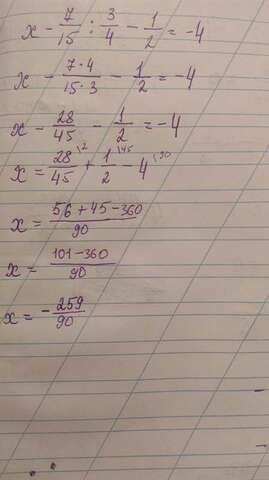 x - 7/15 : 3/4 - 1/2 = -4
x - 7·4/15·3 - 1/2 = -4
x - 28/45 - 1/2 = -4
x = 28/45 \2 + 1/2 \45 - 4 \90
x = 56 + 45 - 360/90
x = 101 - 360/90
x = - 259/90